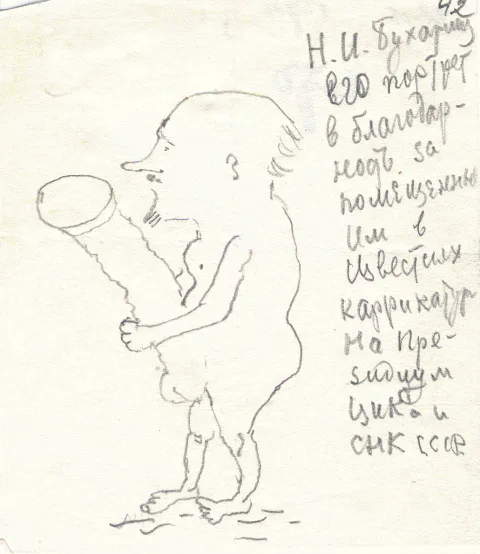 42
Н. И. Бухарину
его портрет
в благодар-
ноcть за
помещенные
им в
Известиях
каррикатуры
на Пре-
зидиум
ЦИКа и
СНК СССР